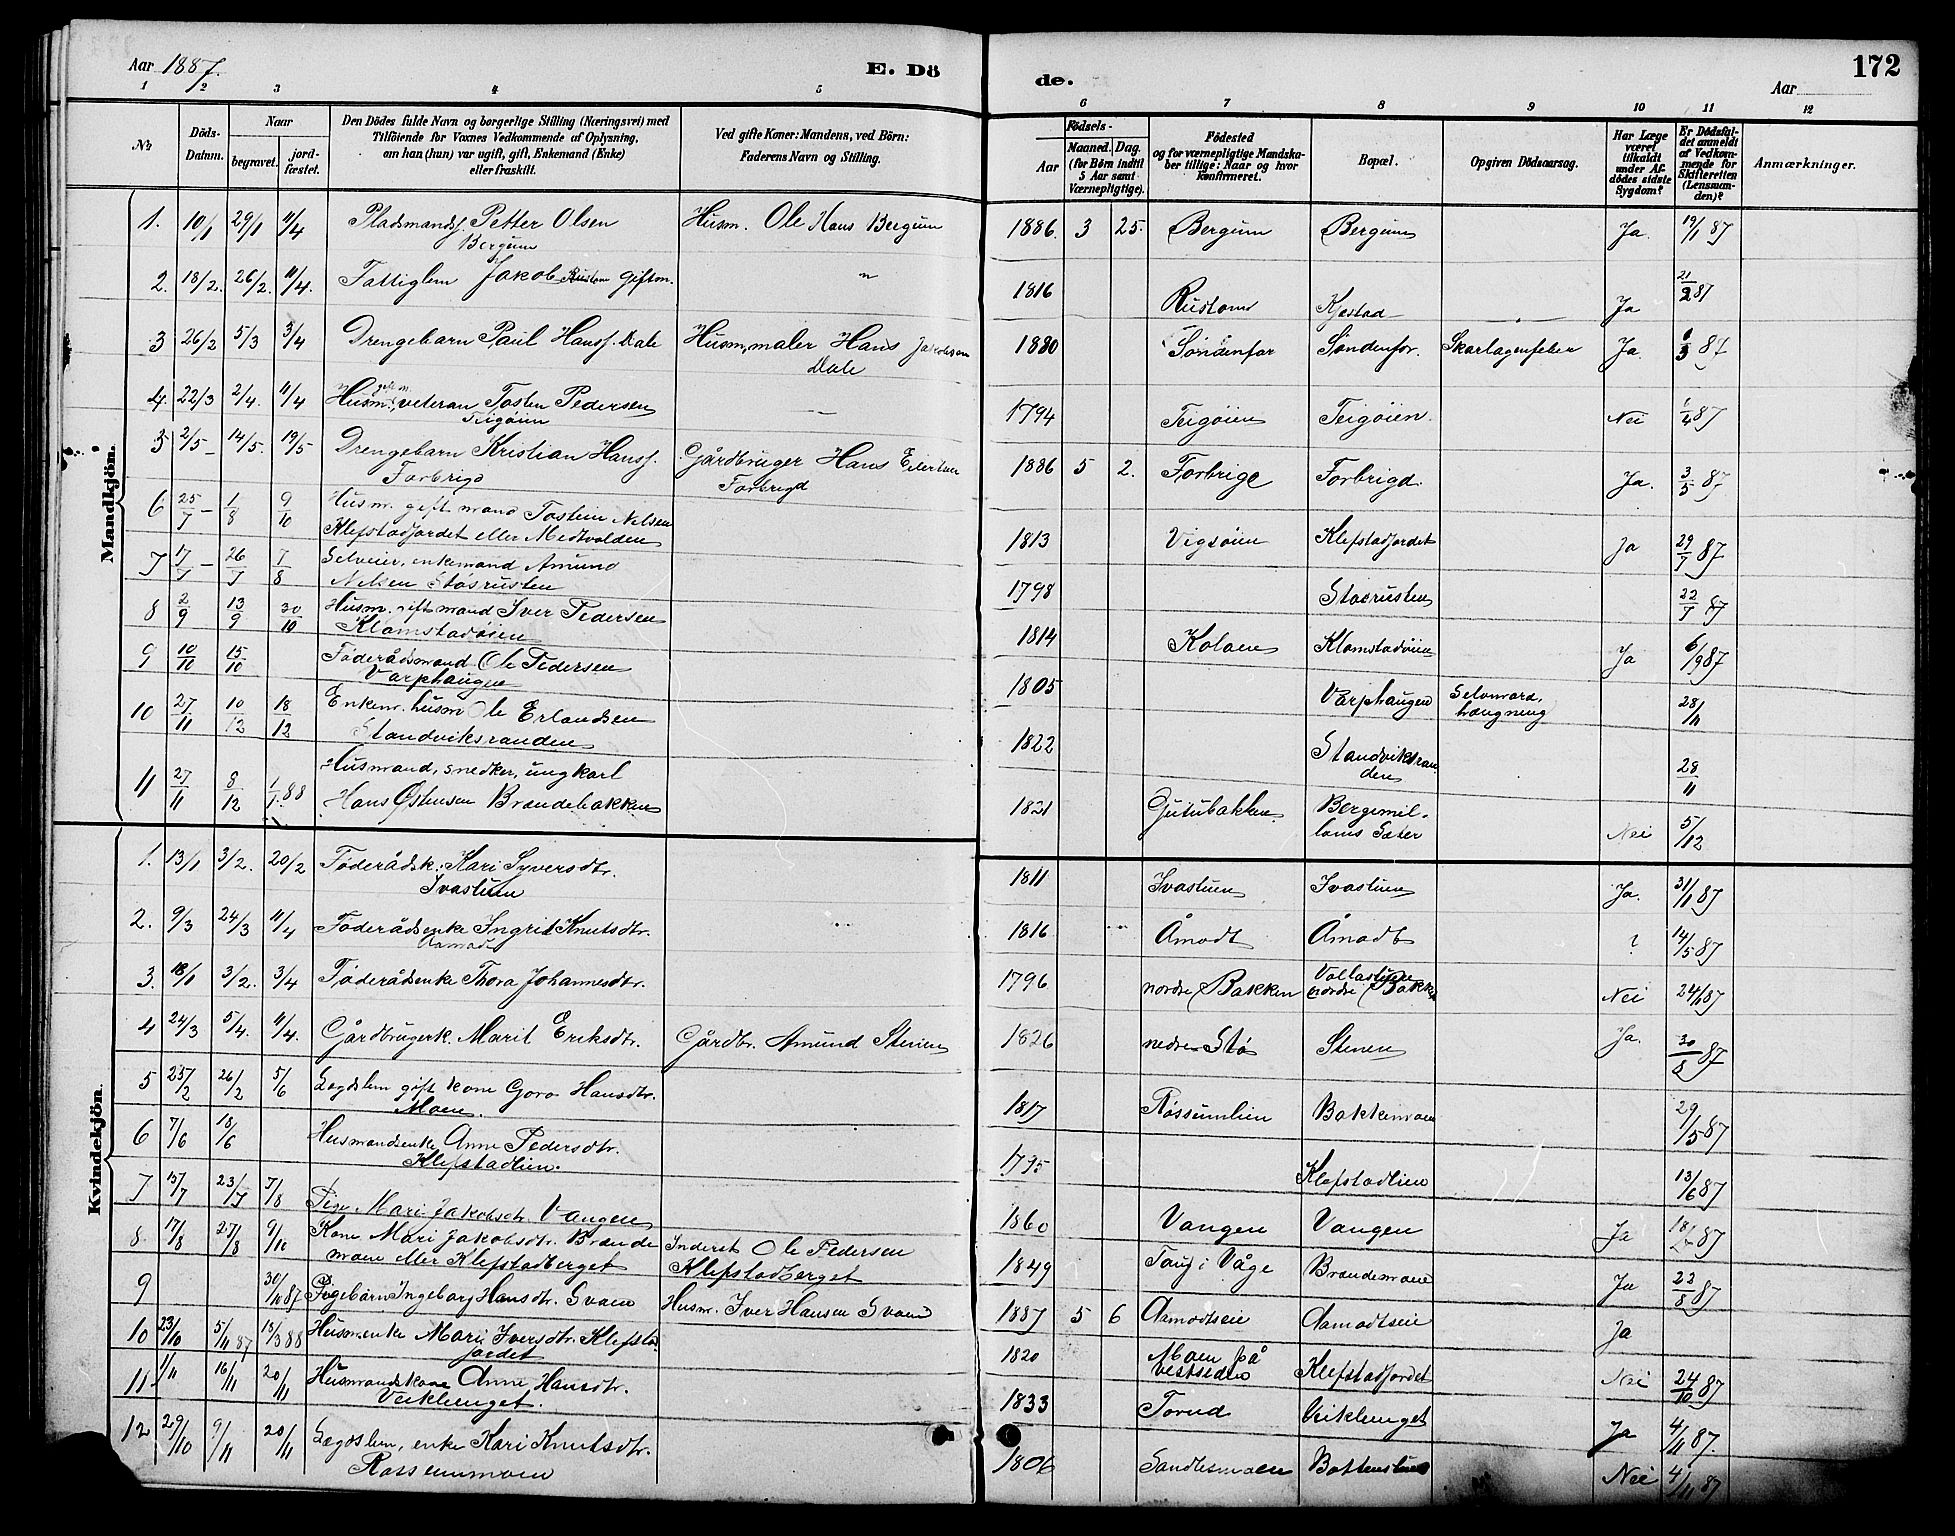 Aar 1887.
E. Dö
de.
172
Aar
1 2 3 4 5 6 7 8 9 10 11 12
No
Döds-Datum.
Naar
begravet.
jord-fæstet.
Den Dödes fulde Navn og borgerlige Stilling (Næringsvei) med
Tilföiende for Voxnes Vedkommende af Oplysning,
om han (hun) var ugift, gift, Enkemand (Enke)
eller fraskilt.
Ved gifte Koner: Mandens, ved Börn:
Faderens Navn og Stilling.
Födsels-
Aar
Maaned. Dag.
(for Börn indtil
5 Aar samt
Værnepligtige).
Födested
og for værnepligtige Mandska-
ber tillige: Naar og hvor
konfirmeret.
Bopæl.
Opgiven Dödsaarsag.
Har Læge
været
tilkaldt
under Af-
dödes sidste
Sygdom?
Er Dödsfal-
det anmeldt
af Vedkom-
mende for
Skifteretten
(Lensman-
den)?
Anmærkninger.
Mandkjön.
1. 10/1 29/1 11/4 Pladsmands. Petter Olsen Bergum Husm. Ole Hans Bergum 1886. 3 25. Bergum Bergum Ja. 19/1 87
2. 18/2. 26/2. 11/4. Fattiglem Jakob Rustom giftm. " 1816 Rustom Kjestad Ja 21/2 87
3 26/2 5/3 3/4 Drengebarn Paul Hanss. Dale Husm, maler Hans Jakobsen Dale 1880 Søndenfor Søndenfor. Skarlagenfeber Ja. 87
4. 22/3 2/4. 11/4 Husm. gift m. veteran Tosten Pedersen Teigøien 1794 Teigøien Teigøien. Nei 1/4 87
5 2/5 14/5. 19/5 Drengebarn Kristian Hanss. Forbrigd Gårdbruger Hans Forbrigd 1886 5 2. Forbrige Forbrigd. Ja. 3/5 87
6 25/7 1/8 9/10 Husm. gift mand Tostein Nelsen Klefstadjordet eller Medtvolden 1813 Vigsøien Klefstadjordet Ja 29/7 87
7 17/7 26/7 7/8 Selveier, enkemand Amund Nelsen Støsrusten 1798 Stosrusten 22/7 87
8 2/9 13/9 30/10 Husm. gift mand Iver Pedersen Klomstadøien 1814 Kolaen Klomstadøien Ja 6/9 87
9 10/10 15/10 Føderådsmand Ole Pedersen Varphaugen 1805 Varphaugen Selvmord, hængning 28/11
10 27/11 10/12 18/12 Enkem. husm Ole Erlandsen Standviksranden 1822 Standviksranden 28/11
11 27/11 8/12 1/1 88 Husmand, snedker, ungkarl Hans Østensen Brændebakken 1821 Gutubakken Bergemil- Sæter Nei 5/12
Kvindekjön.
1. 13/1 3/2. 20/2 Føderådsk. Kari Syversdtr. Ivastuen 1811 Ivastuen Ivastuen Ja. 31/1 87
2. 9/3 24/3 11/4 Føderådsenke Ingrit Knutsdtr. Aamodt 1816 Åmodt Åmodt ? 14/5 87
3. 18/1 3/2. 3/4 Føderådsenke Thora Johannesdtr. 1796 nordre Bakken Vollastuen nordre Bakken Nei 24/1 87
4 24/3 5/4. 11/4. Gårdbrugerk. Marit Eriksdtr. Gårdbr. Amund Stenen 1826 nedre Stø Stenen Ja.
5 25/2 26/2 5/6 Lægdslem gift kone Goro Hansdtr. Moen. 1817 Røssumlien Bakkemoen 29/5 87
6 7/6 18/6 Husmandsenke Anne Pedersdtr. Klefstadlien. 1795 Klefstadlien 13/6 87
7 15/7 23/7 7/8 Pige Mari Jakobsdtr. Vangen 1860 Vangen Vangen Ja 87
8. 17/8 27/8 9/10 Kone Mari Jakobsdtr. Brændemoen eller Klefstadberget Inderst Ole Pedersen Klefstadberget 1849 i Våge Brændemoen Ja 22/8 87
9 30/11 87 Pigebarn Ingeborg Hansdtr. Svaen Husm. Iver Hansen Svaen 1887 5 6 Aamodtseie Aamodtseie Ja
10 23/10 5/11 87 13/3 88 Husm.enke Mari Iversdtr. Klefstadjordet 1820 Moen på vestsiden Klefstadjordet Nei 24/10 87
11 1/11 16/11 20/11 Husmandskone Anne Hansdtr. Veiklenget. 1833 Torud Veiklenget Ja 4/11 87.
12 29/10 9/11 20/11 Lægdslem, enke Kari Knutsdtr. Rossemmoen 1806 Sandlesmoen Bottenstuen Nei 4/11 87